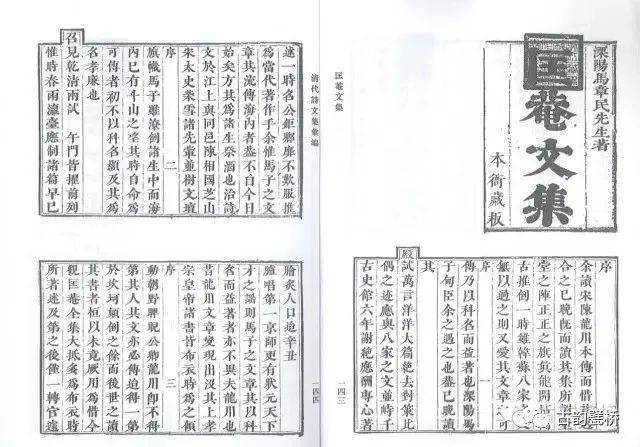 溧陽馬章民先生著
匡菴文集
本衙藏板
匡菴文集
序
余讀宋陳龍川本傳而惜其
合之已晚旣而讀其集所謂
堂之陣正正之旗眞能開拓
古推倒一時雖韓蘇八家
以過之則又愛其文章
傳乃以科名而益著也溧陽馬
子旬臣余之遇之也蓋已晚讀
其
殿試萬言洋洋大篇絶去對策比
偶之迹應與八家之文並時千
古史館六年謝絶應酬專心著
一四三
清代詩文集彙編
述一時名公鉅卿靡不歎服推
為當代著作手余惟馬子之文
章其流傳海內者蓋不自今日
始矣方其為諸生祭酒也洽詩
文於江上與同邑陳相國芝山
朱太史葉雪諸先輩並樹文壇
序 二
旗幟馬子雖潦倒諸生中而海
內已有斗山之望其時自命為
可傳者初不以科名顯及其為
名孝廉也
召見乾清兩試 午門皆擢前列
惟時春雨瀛臺應制諸篇早已
膾炙人口迨辛丑
臚唱第一京師更有狀元天下
才之謡則馬子之文章其以科
名而益著者亦不異夫龍川也
昔龍川用文章變現出沒其上孝
宗皇帝諸書皆布衣時
序 三
動朝野睥睨公卿龍川卽不得
第其人其文亦必傳迨得一第
於坎坷顛倒之餘而後世之讀
其書者恒以未竟厥用為惜今
觀匡菴全集大抵多為布衣時
所著述及第之後僅一轉官遽
一四四